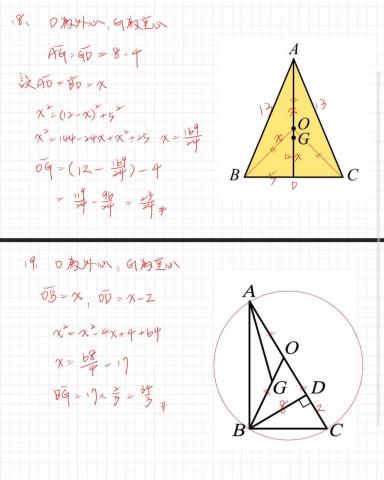 18. O為外心, G為重心
AG=GD=8-4
設AO=BO=x
x²=(12-x)²+5²
x²=144-24x+x²+25 x=169/24
OG=(12-169/24)-4
=119/24-96/24=23/24#
A
12
13
x
O
G
x
12-x
B
5
D
C
19. O為外心, G為重心
OB=x, OD=x-2
x²=x²-4x+4+64
x=68/4=17
BG=17×2/3=34/3#
A
O
G
D
8
2
B
C